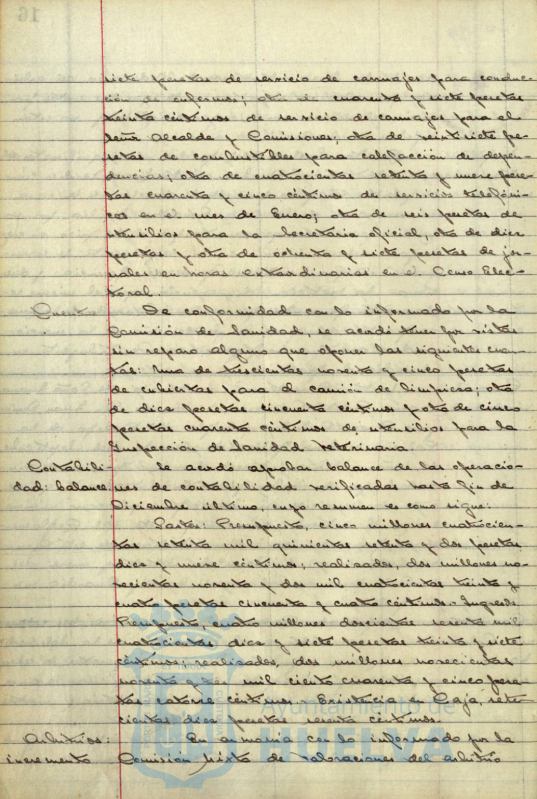 16
siete pesetas de servicio de carruajes para conduc-
ción de enfermos; otra de cuarenta y siete pesetas
treinta céntimos de servicio de carruajes para el
Señor Alcalde y Comisiones; otra de veintisiete pe-
setas de combustibles para calefacción de depen-
dencias; otra de cuatrocientas setenta y nueve pese-
tas cuarenta y cinco céntimos de servicio telefóni-
cos en el mes de Enero; otra de seis pesetas de
utensilios para la Secretaria oficial, otra de diez
pesetas y otra de ochenta y siete pesetas de jor-
nales en horas extraordinarias en el Censo Elec-
toral.
Cuentas De conformidad con lo informado por la
Comisión de Sanidad, se acordó tener por vistas
sin reparo alguno que oponer las siguientes cuen-
tas: una de trescientas noventa y cinco pesetas
de cubiertas para el camión de limpieza; otra
de diez pesetas cincuenta céntimos y otra de cinco
pesetas cuarenta céntimos de utensilios para la
Inspección de Sanidad Veterinaria.
Contabili- Se acordó aprobar balance de las operacio-
dad: balance. nes de contabilidad verificadas hasta fin de
Diciembre último, cuyo resumen es como sigue:
Gastos: Presupuesto, cinco millones cuatrocien-
tas setenta mil quinientas setenta y dos pesetas
diez y nueve céntimos; realizados, dos millones no-
vecientas noventa y dos mil cuatrocientas treinta y
cuatro pesetas cincuenta y cuatro céntimos. - Ingresos.
Presupuesto, cuatro millones doscientas sesenta mil
cuatrocientas diez y siete pesetas treinta y siete
céntimos; realizados, dos millones novecientas
noventa y tres mil ciento cuarenta y cinco pese-
tas catorce céntimos. Existencia en Caja, sete-
cientas diez pesetas sesenta céntimos.
Arbitrios: En armonia con lo informado por la
incremento Comisión mixta de valoraciones del arbitrio
Ayuntamiento de
HUELVA